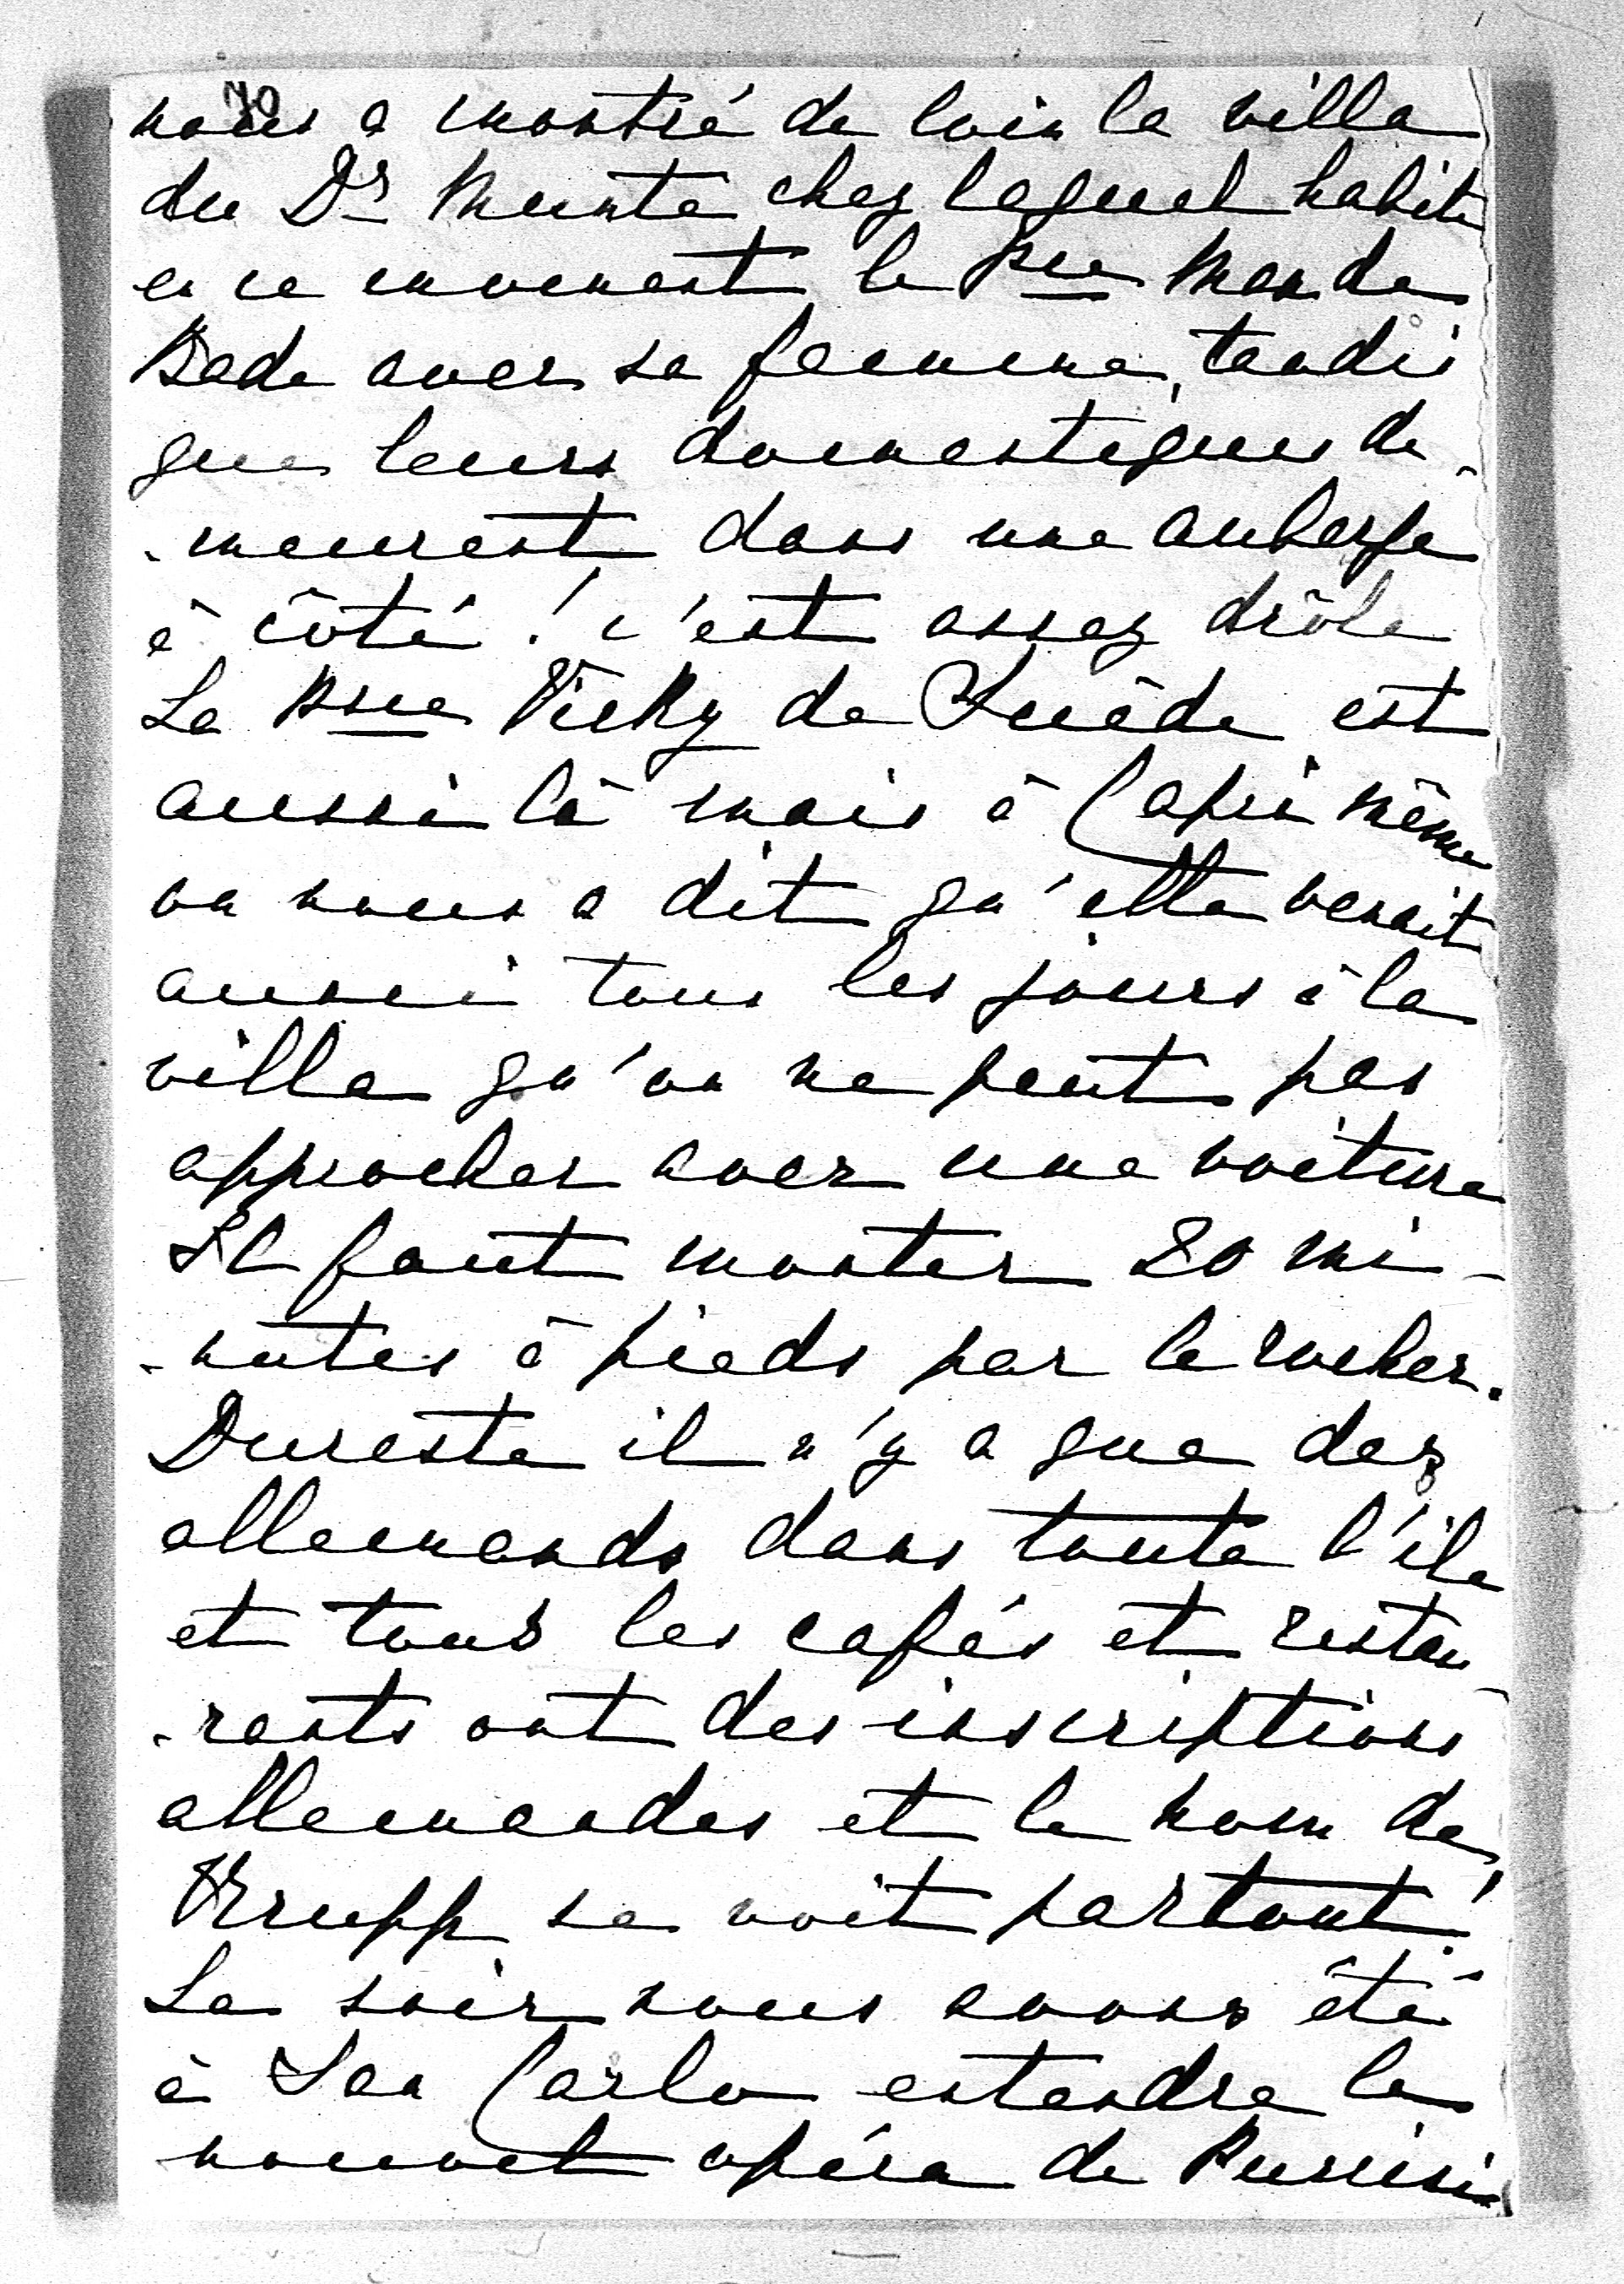 70
nous a montré de loin la villa
du Dr Munte chez lequel habite
en ce moment le Pce Max de
Bade avec sa femme, tandis
que leurs domestiques de-
-meurent dans une auberge
à côté! c'est assez drôle
La Psse Vicky de Suède est
aussi là mais à Capri même
on nous a dit qu'elle venait
aussi tous les jours à la
villa qu'on ne peut pas
approcher avec une voiture
Il faut monter 20 mi-
-nutes à pieds par le rocher.
Dureste il n'y a que des
allemands dans toute l'ile
et tous les cafés et restau-
-rants ont des inscriptions
allemandes et le nom de
Krupp se voit partout!
Le soir nous avons été
à San Carlo entendre le
nouvel opéra de Puccini